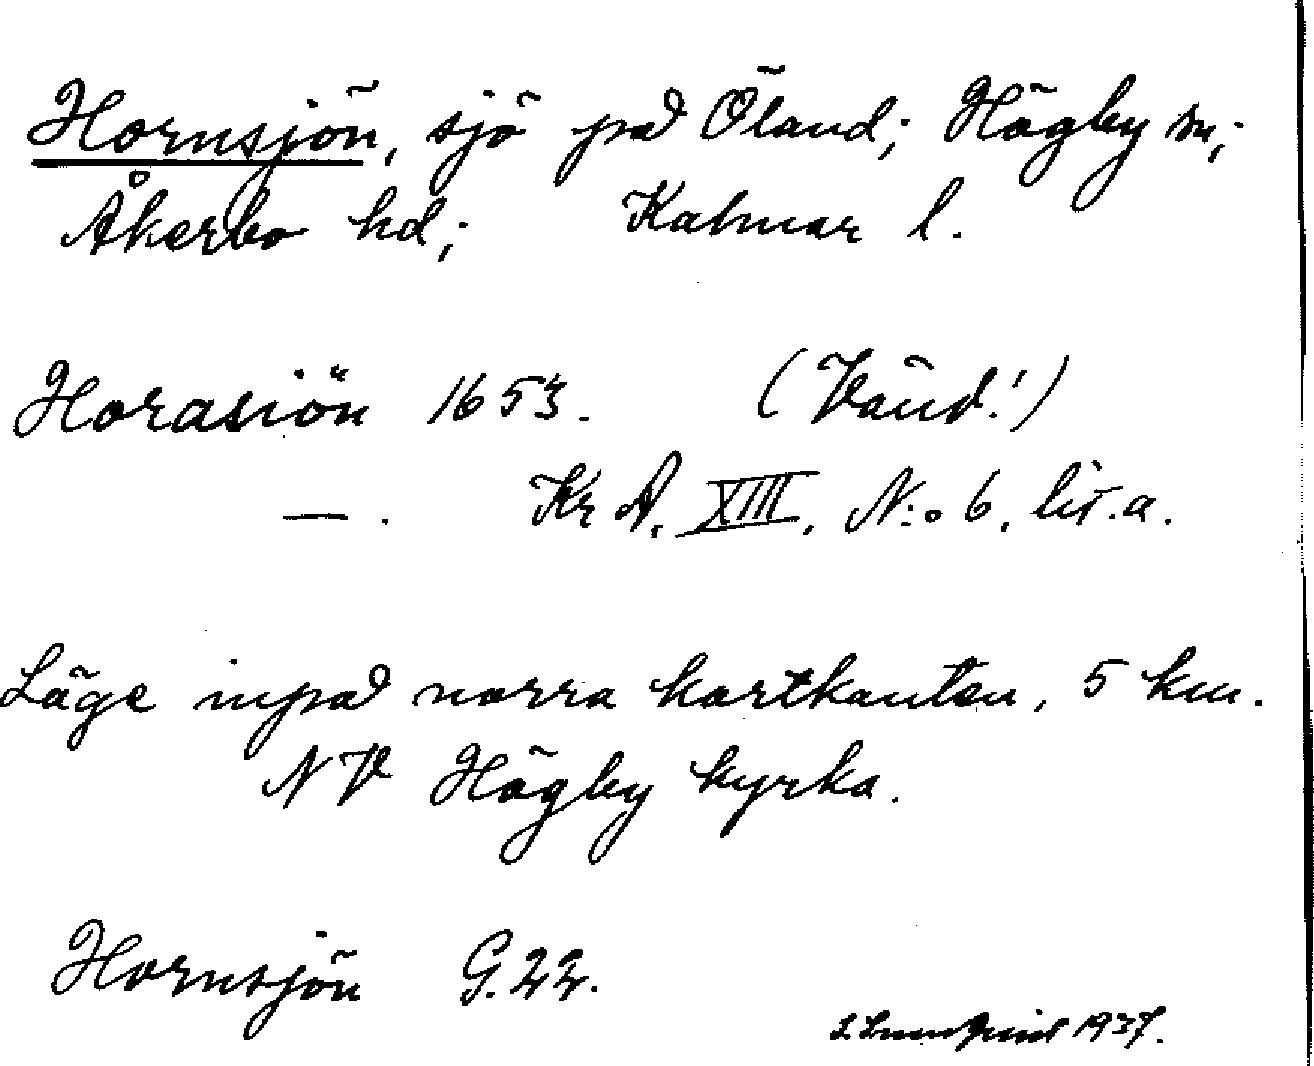 Hornsjön, sjö på Öland; Högby sn;
Åkerbo hd; Kalmar l.
Horasiön 1653. (Vänd!)
—. Kr A. XIII. N:o 6. lit. a.
Läge inpå norra kartkanten, 5 km.
NV Högby kyrka.
Hornsjön G. 22.
1937.